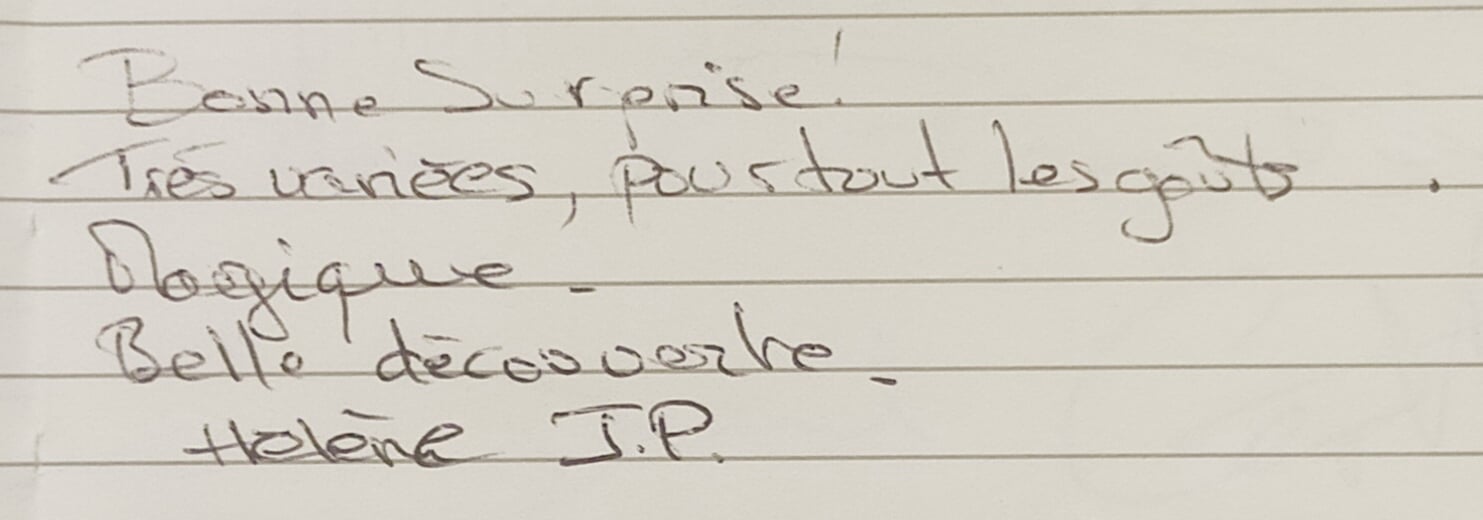 Bonne Surprise!
Très variées, pour tout les goûts.
Magique.
Belle découverte.
Hélène J.P.